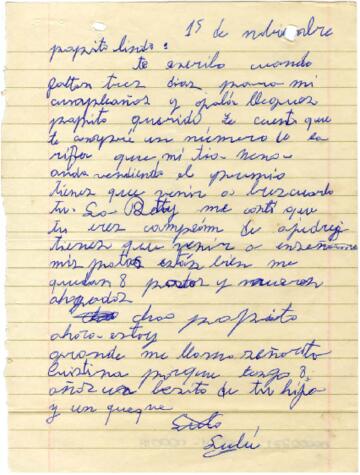 19 de nobiembre
papito lindo:
te escribo cuando
faltan tres dias para mi
cumpleaños y ojalá llegues
papito querido te cuento que
te compré un número de la
rifa que mi tia nena
anda vendiendo el premio
tienes que venir a buscarlo
tu. La Betty me contó que
tu eres campeón de ajedrez
tienes que venir a enseñarme
mis patos están bien me
quedan 8 patos y murieron
ahogados
chao papito
ahora estoy
grande me llamo señorita
Cristina porque tengo 8
años un besito de tu hija
y un queque
Lulú